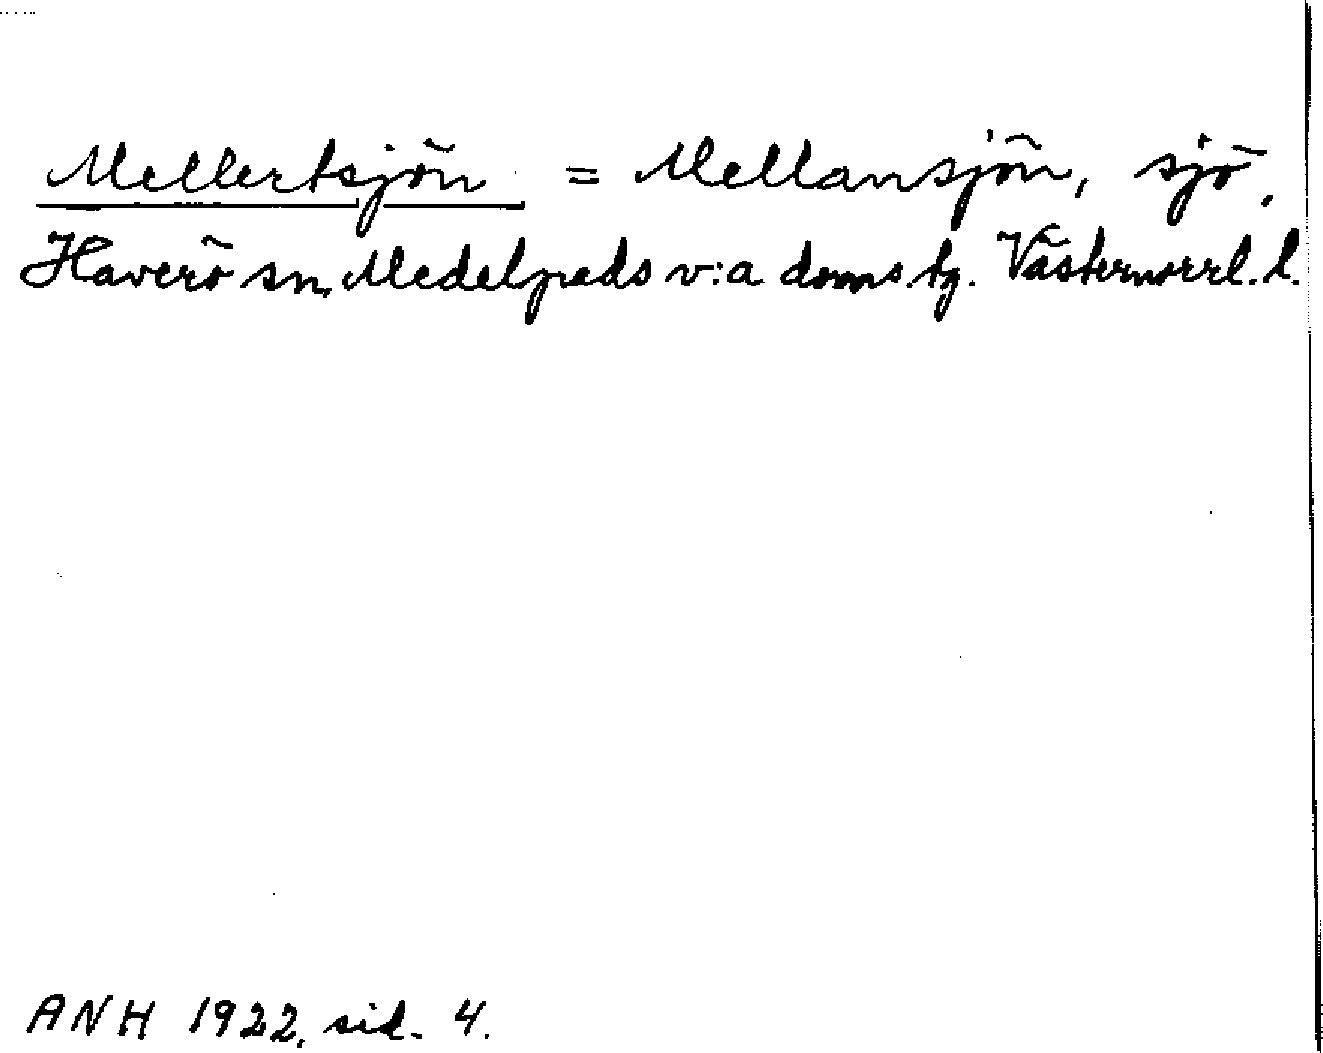 Mellertsjön = Mellansjön, sjö,
Haverö sn, Medelpads v:a doms.tg. Västernorrl.l.
ANH 1922, sid. 4.